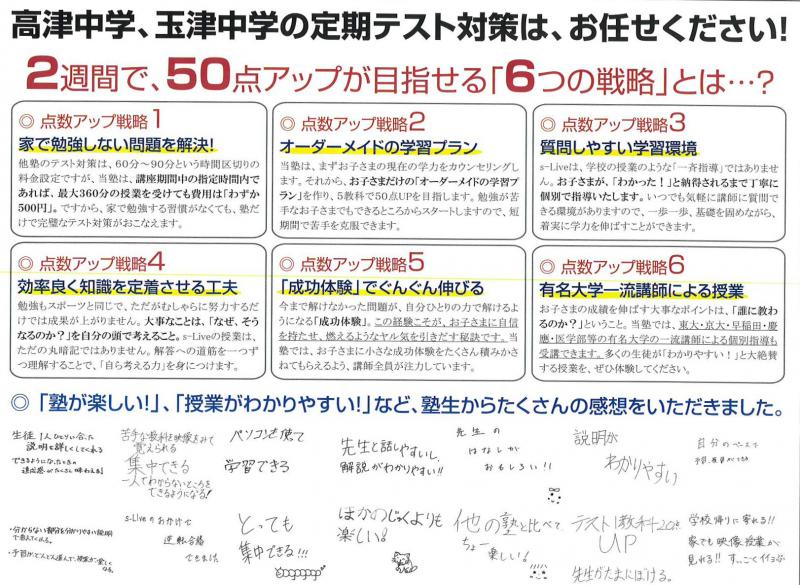 高津中学、玉津中学の定期テスト対策は、お任せください!
2週間で、50点アップが目指せる「6つの戦略」とは…?
◎ 点数アップ戦略1
家で勉強しない問題を解決!
他塾のテスト対策は、60分〜90分という時間区切りの
料金設定ですが、当塾は、講座期間中の指定時間内で
あれば、最大360分の授業を受けても費用は「わずか
500円」。ですから、家で勉強する習慣がなくても、塾だ
けで完璧なテスト対策がおこなえます。
◎ 点数アップ戦略2
オーダーメイドの学習プラン
当塾は、まずお子さまの現在の学力をカウンセリングしま
す。それから、お子さまだけの「オーダーメイドの学習プ
ラン」を作り、5教科で50点UPを目指します。勉強が苦
手なお子さまでもできるところからスタートしますので、短
期間で苦手を克服できます。
◎ 点数アップ戦略3
質問しやすい学習環境
s-Liveは、学校の授業のような「一斉指導」ではありませ
ん。お子さまが、「わかった!」と納得されるまで丁寧に
個別で指導いたします。いつでも気軽に講師に質問でき
る環境がありますので、一歩一歩、基礎を固めながら、
着実に学力を伸ばすことができます。
◎ 点数アップ戦略4
効率良く知識を定着させる工夫
勉強もスポーツと同じで、ただがむしゃらに努力するだけ
では成果が上がりません。大事なことは、「なぜ、そうな
るのか?」を自分の頭で考えること。s-Liveの授業は、
ただの丸暗記ではありません。解答への道筋を一つず
つ理解することで、「自ら考える力」を身につけます。
◎ 点数アップ戦略5
「成功体験」でぐんぐん伸びる
今まで解けなかった問題が、自分ひとりの力で解けるよ
うになる「成功体験」。この経験こそが、お子さまに自信
を持たせ、燃えるようなヤル気を引きだす秘訣です。当
塾では、お子さまに小さな成功体験をたくさん積みかさ
ねてもらえるよう、講師全員が注力しています。
◎ 点数アップ戦略6
有名大学一流講師による授業
お子さまの成績を伸ばす大事なポイントは、「誰に教わ
るのか?」ということ。当塾では、東大・京大・早稲田・慶
應・医学部等の有名大学の一流講師による個別指導も
受講できます。多くの生徒が「わかりやすい!」と大絶賛
する授業を、ぜひ体験してください。
◎ 「塾が楽しい!」、「授業がわかりやすい!」など、塾生からたくさんの感想をいただきました。
生徒1人ひとりに合った
説明を詳しくしてくれる
できるようになったときの
達成感がたくさん味わえる!
苦手な教科を映像をみて
覚えられる
集中できる
一人でわからないところを
できるようになる!
パソコンを使って
学習できる
先生と話しやすいし、
解説がわかりやすい!!
先生の
はなしが
おもしろい!!
説明が
わかりやすい
自分のペースで
・分からない部分を分かりやすい説明
で教えてくれる。
・予習がどんどん進んで、授業が楽しく
なる。
s-Liveのおかげで
逆転合格
できました
とっても
集中できる!!!
ほかのじゅくよりも
楽しい!
他の塾と比べて
ちょー楽しい!
テスト1教科20点
UP
先生がたまにぼける。
学校帰りに寄れる!!
家でも映像授業が
見れる!! すっごくイイョ